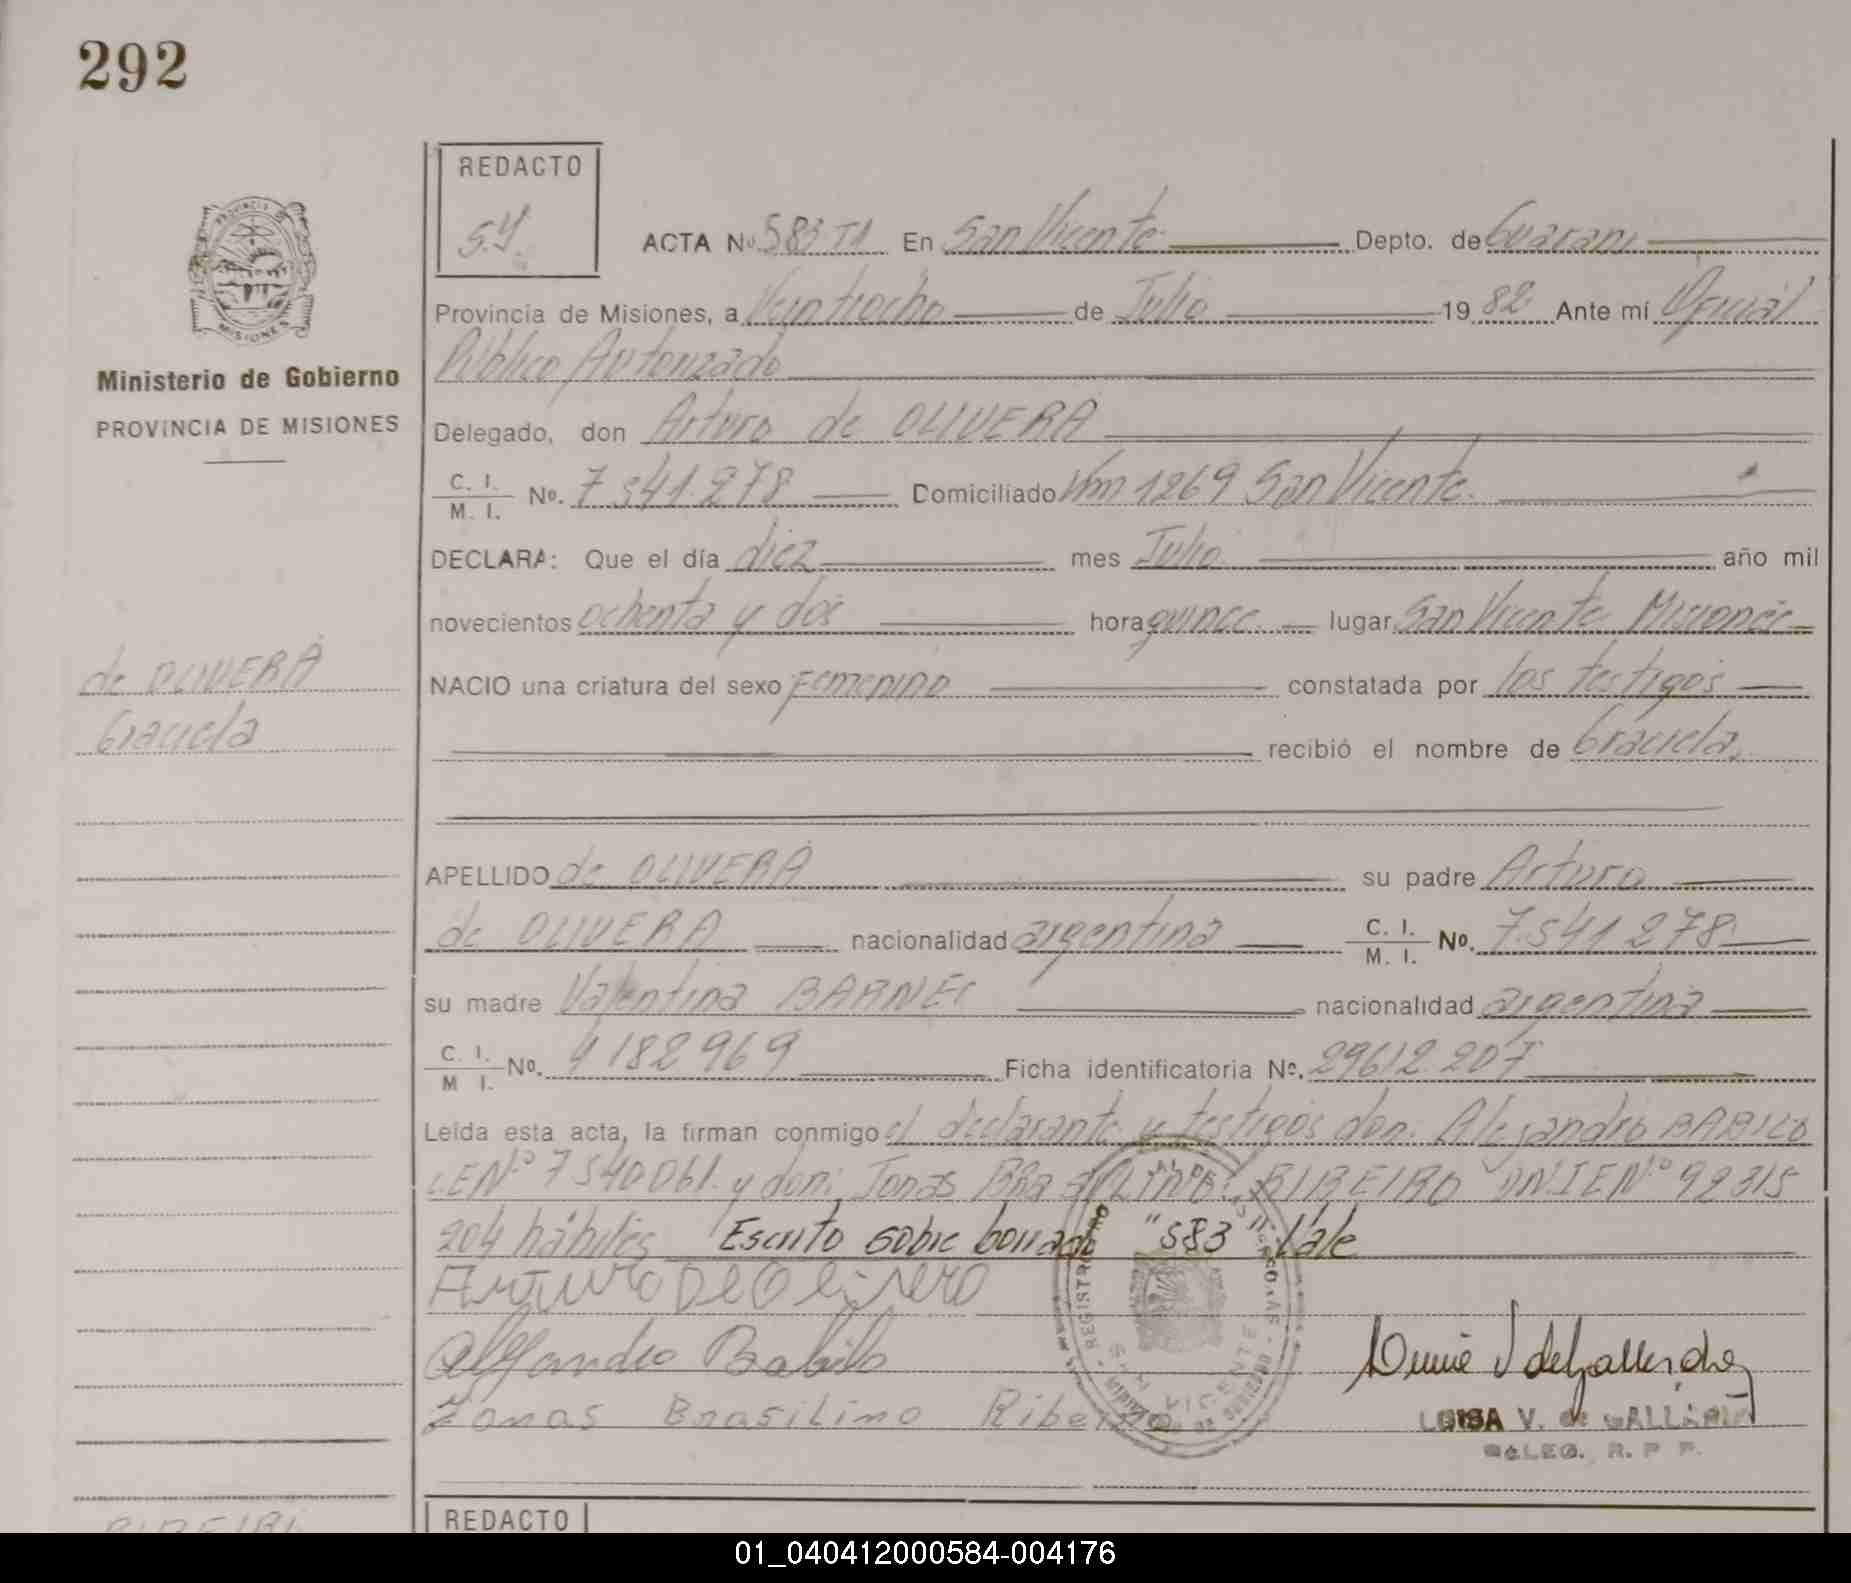 292
REDACTO
S.Y.
ACTA No. 583 T1 En San Vicente Depto. de Guarani
Provincia de Misiones, a Veintiocho de Julio 19 82 Ante mí Oficial
Público Autorizado
PROVINCIA DE MISIONES
Ministerio de Gobierno
PROVINCIA DE MISIONES
Delegado, don Arturo de OLIVERA
C. I. M. I. No. 7.541.278 Domiciliado Km 1269 San Vicente.
DECLARA: Que el día diez mes Julio año mil
novecientos ochenta y dos hora quince lugar San Vicente Misiones
de OLIVERA
Graciela
NACIO una criatura del sexo Femenino constatada por los testigos
recibió el nombre de Graciela,
APELLIDO de OLIVERA su padre Arturo
de OLIVERA nacionalidad argentina C. I. M. I. No. 7.541.278
su madre Valentina nacionalidad argentina
C. I. M I. No. 4182969 Ficha identificatoria No. 29612.207
Leída esta acta, la firman conmigo el declarante y testigos don: Alejandro BABILO
LEN° 7540061. y don: Jonas RIBEIRO DNIEN° 92315
204 hábiles Escrito sobre borrado "583" Vale
Arturo De Olivero
Alejandro Babilo
Jonas Brasilino Ribeiro
REGISTRO
SAN VICENTE
LUISA V. de
DELEG. R. P P.
REDACTO
01_040412000584-004176